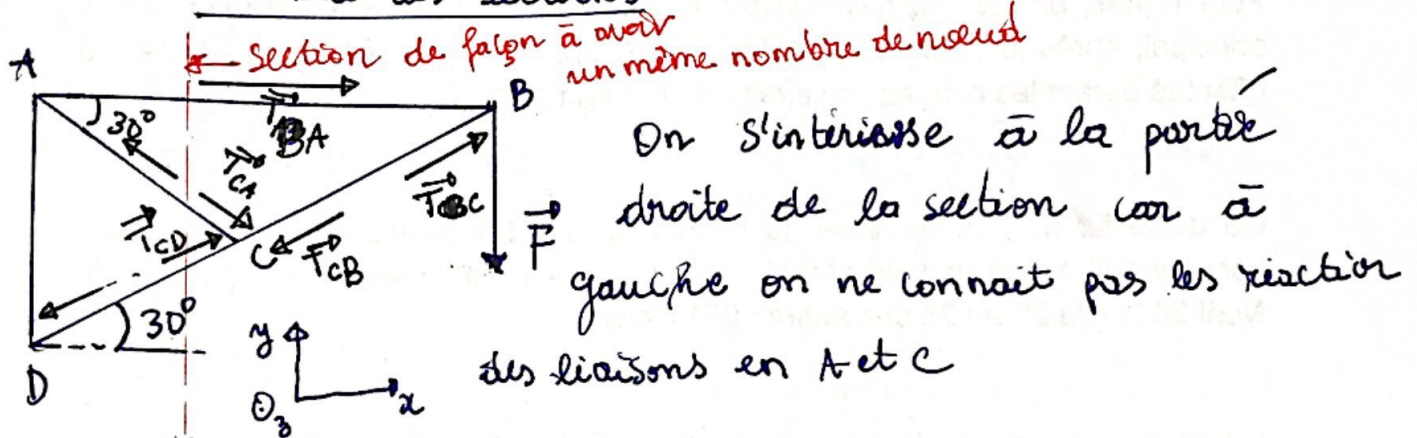 section de façon à avoir
un même nombre de nœud
A
B
30°
T BA
T CA
T CD
C
T CB
T BC
F
30°
D
y
x
O z
On s'intériesse à la partie
droite de la section car à
gauche on ne connait pas les réaction
des liaisons en A et C